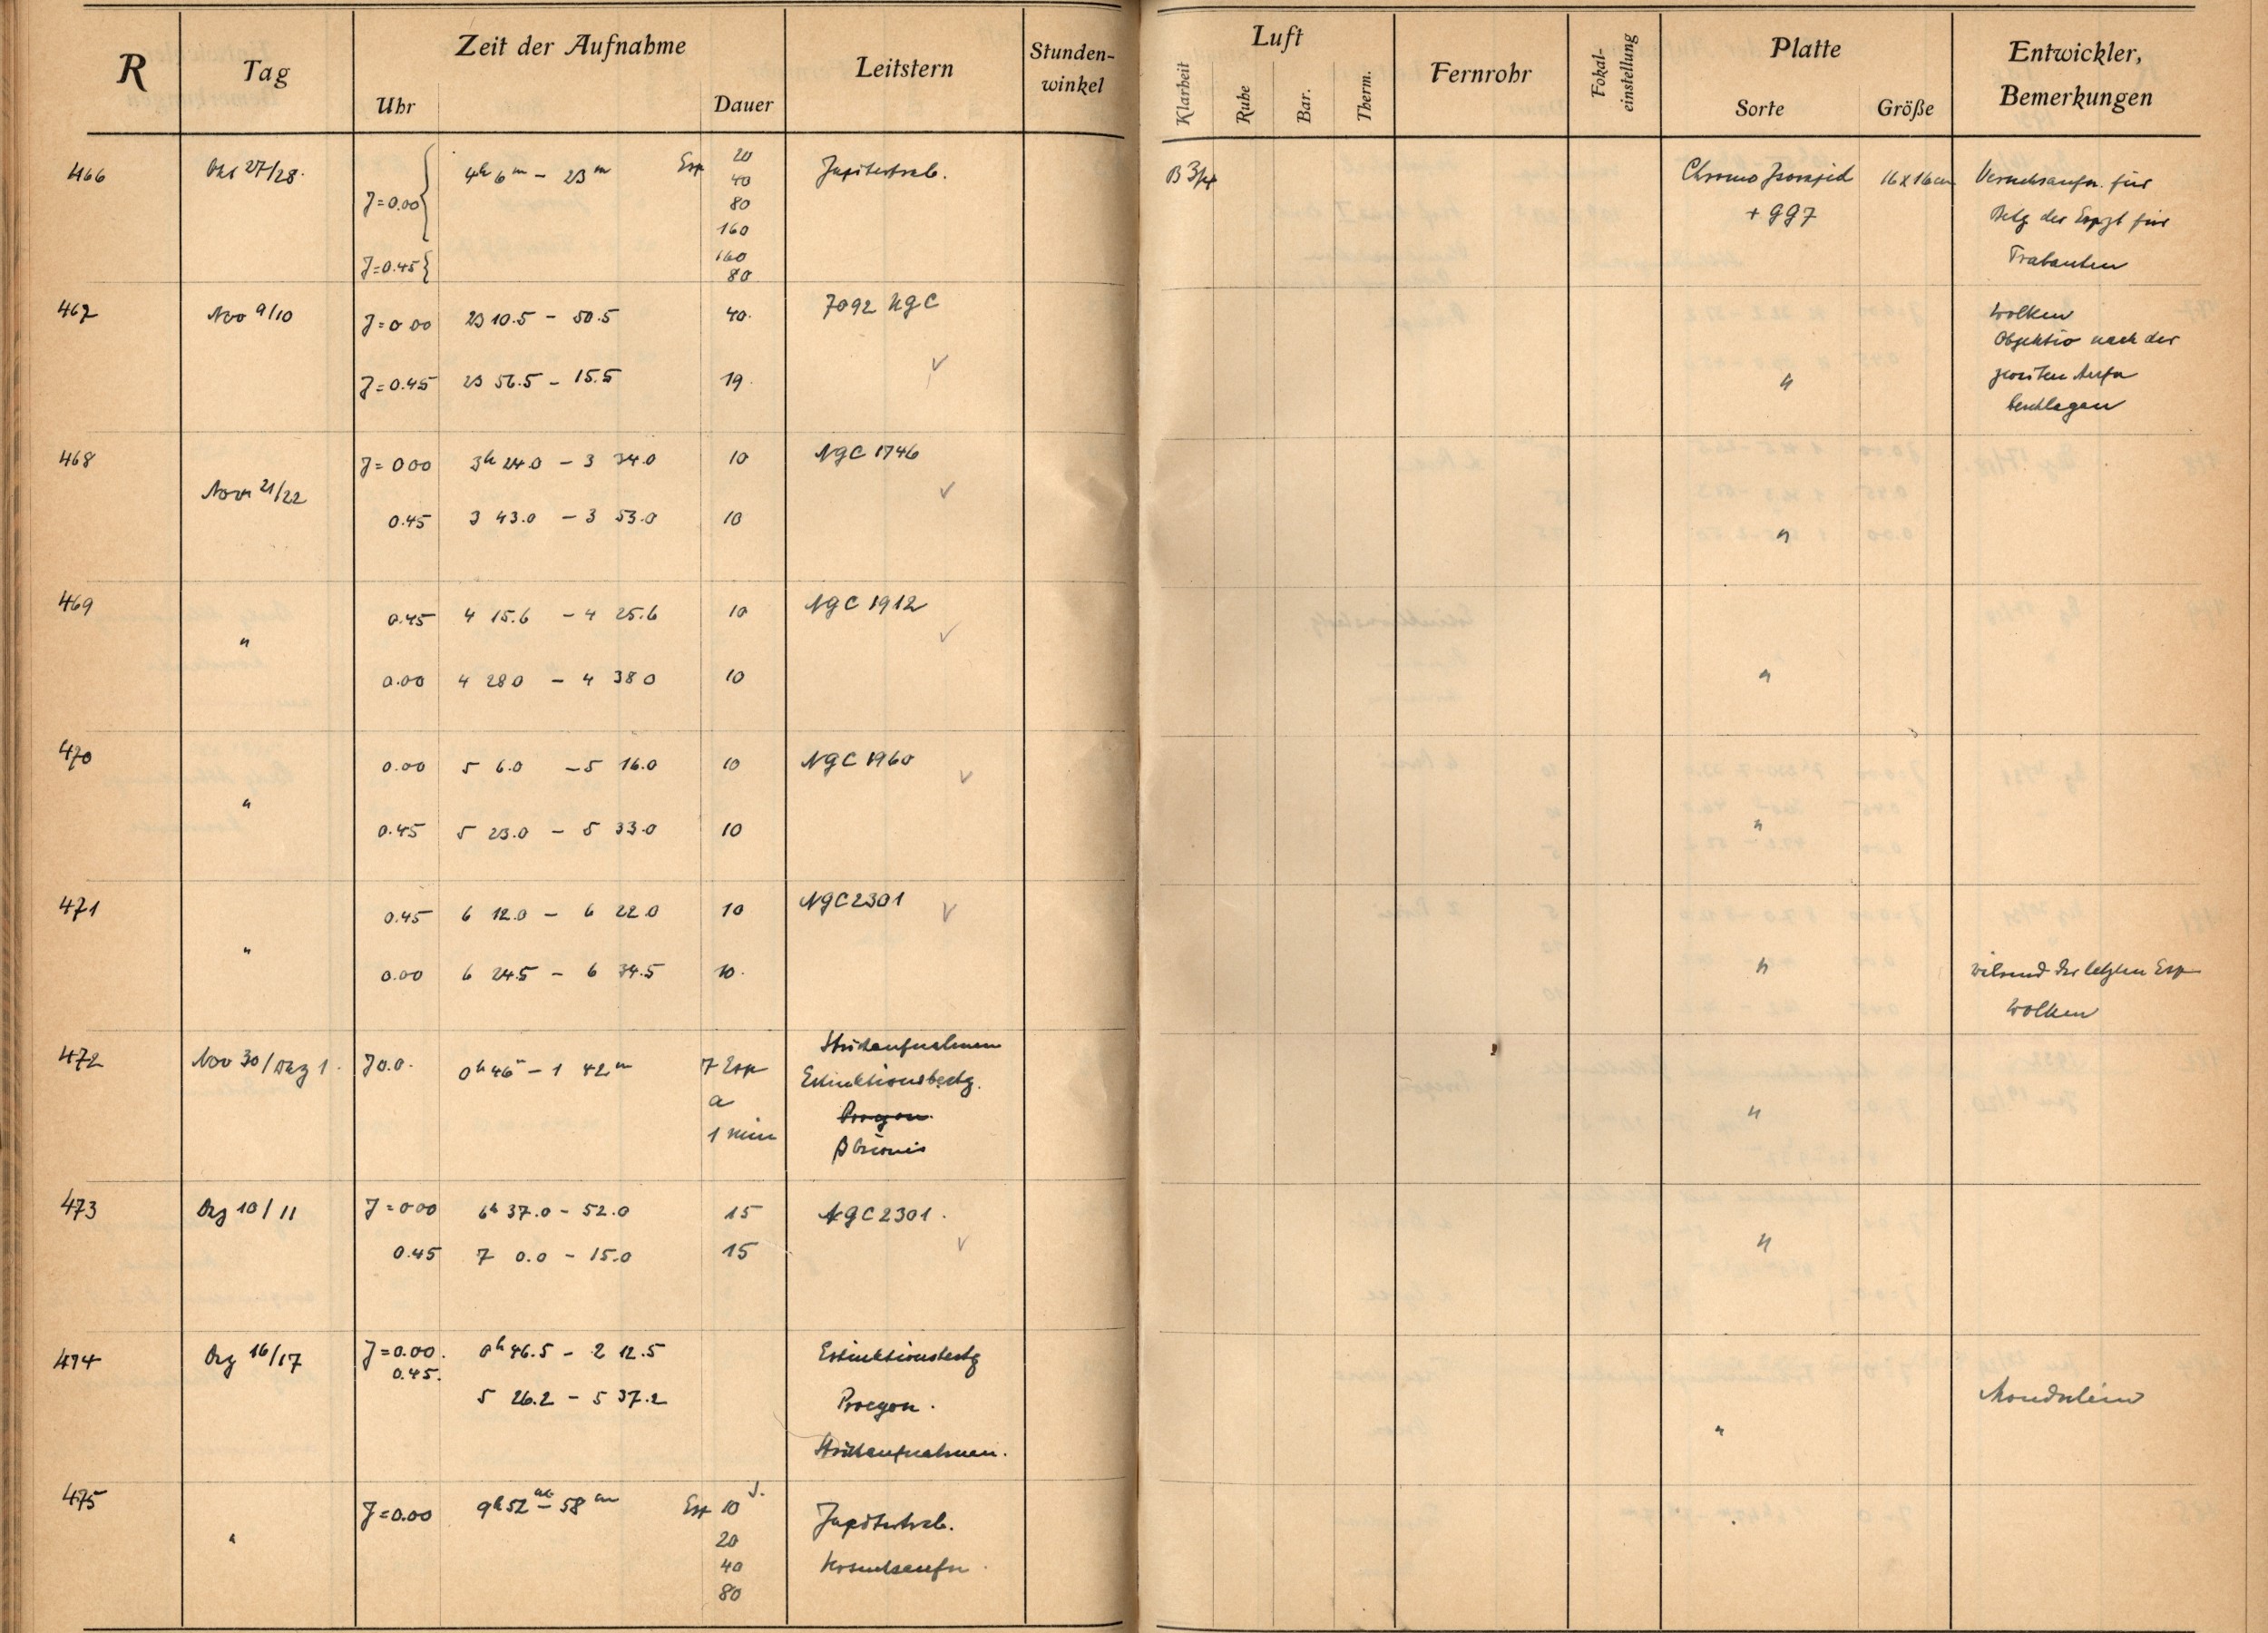 R Tag Zeit der Aufnahme Leitstern Stunden-winkel Luft Fernrohr Fokal-einstellung Platte Entwickler, Bemerkungen
Uhr Dauer Klarheit Ruhe Bar. Therm. Sorte Größe
466 Okt 27/28. J=0.00 4h 6m – 23m Exp 20 Jupitertrab. B Chromo Isorapid 16x16cm Versuchsaufn. für
40
80 + GG7 Bstg der Expzt für
160
J=0.45 160 Trabanten
80
467 Nov 9/10 J=0 00 23 10.5 – 50.5 40. 7092 NGC Wolken
Objektiv nach der
J=0.45 23 56.5 – 15.5 19. ✓ " zweiten Aufn
beschlagen
468 Nov 21/22 J=0 00 3h 24.0 – 3 34.0 10 NGC 1746
0.45 3 43.0 – 3 53.0 10 ✓ "
469 " 0.45 4 15.6 – 4 25.6 10 NGC 1912 ✓
0.00 4 28 0 – 4 38 0 10 "
470 " 0.00 5 6.0 – 5 16.0 10 NGC 1960 ✓
0.45 5 23.0 – 5 33.0 10 "
471 " 0.45 6 12.0 – 6 22 0 10 NGC 2301 ✓
0.00 6 24.5 – 6 34.5 10. " während der letzten Exp
Wolken
472 Nov 30/Dez 1. J 0.0. 0h 46m – 1 42m 7 Exp Strichaufnahmen
Extinktionsbestg.
a Procyon "
1 min β Orionis
473 Dez 10/11 J=0 00 6h 37.0 – 52.0 15 NGC 2301.
0.45 7 0.0 – 15.0 15 ✓ "
474 Dez 16/17 J=0.00. 0h 46.5 – 2 12.5 Extinktionsbestg
0.45.
5 26.2 – 5 37.2 Procyon. Mondschein
Strichaufnahmen. "
475 " J=0.00 9h 52m – 58m Exp 10 s. Jupitertrab.
20
40 Versuchsaufn.
80